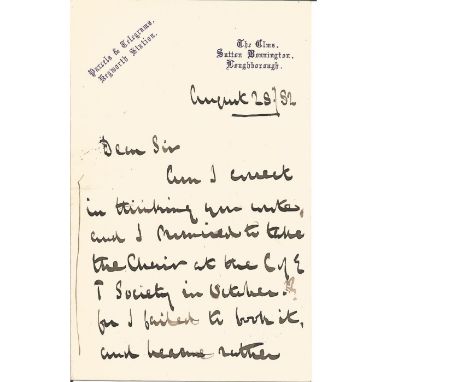 Parcels & Telegrams.
Kegworth Station.
The Elms.
Sutton Bonnington.
Loughborough.
August 28/82
Dear Sir
Am I correct
in thinking you wrote,
and I promised to take
the Chair at the C of E
T Society in October.
for I failed to book it,
and became rather